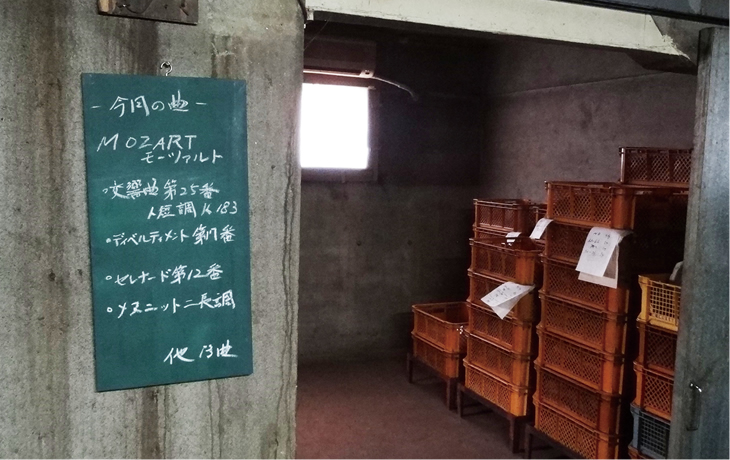 - 今月の曲 -
MOZART
モーツァルト
・交響曲第25番
ト短調 K183
・ディベルティメント第17番
・セレナード第12番
・メヌエット ニ長調
他 13曲